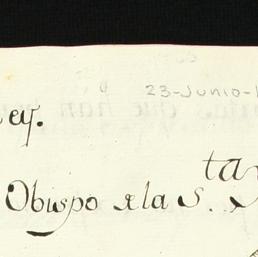 23-Junio-1
ey.
ta
Obispo de las